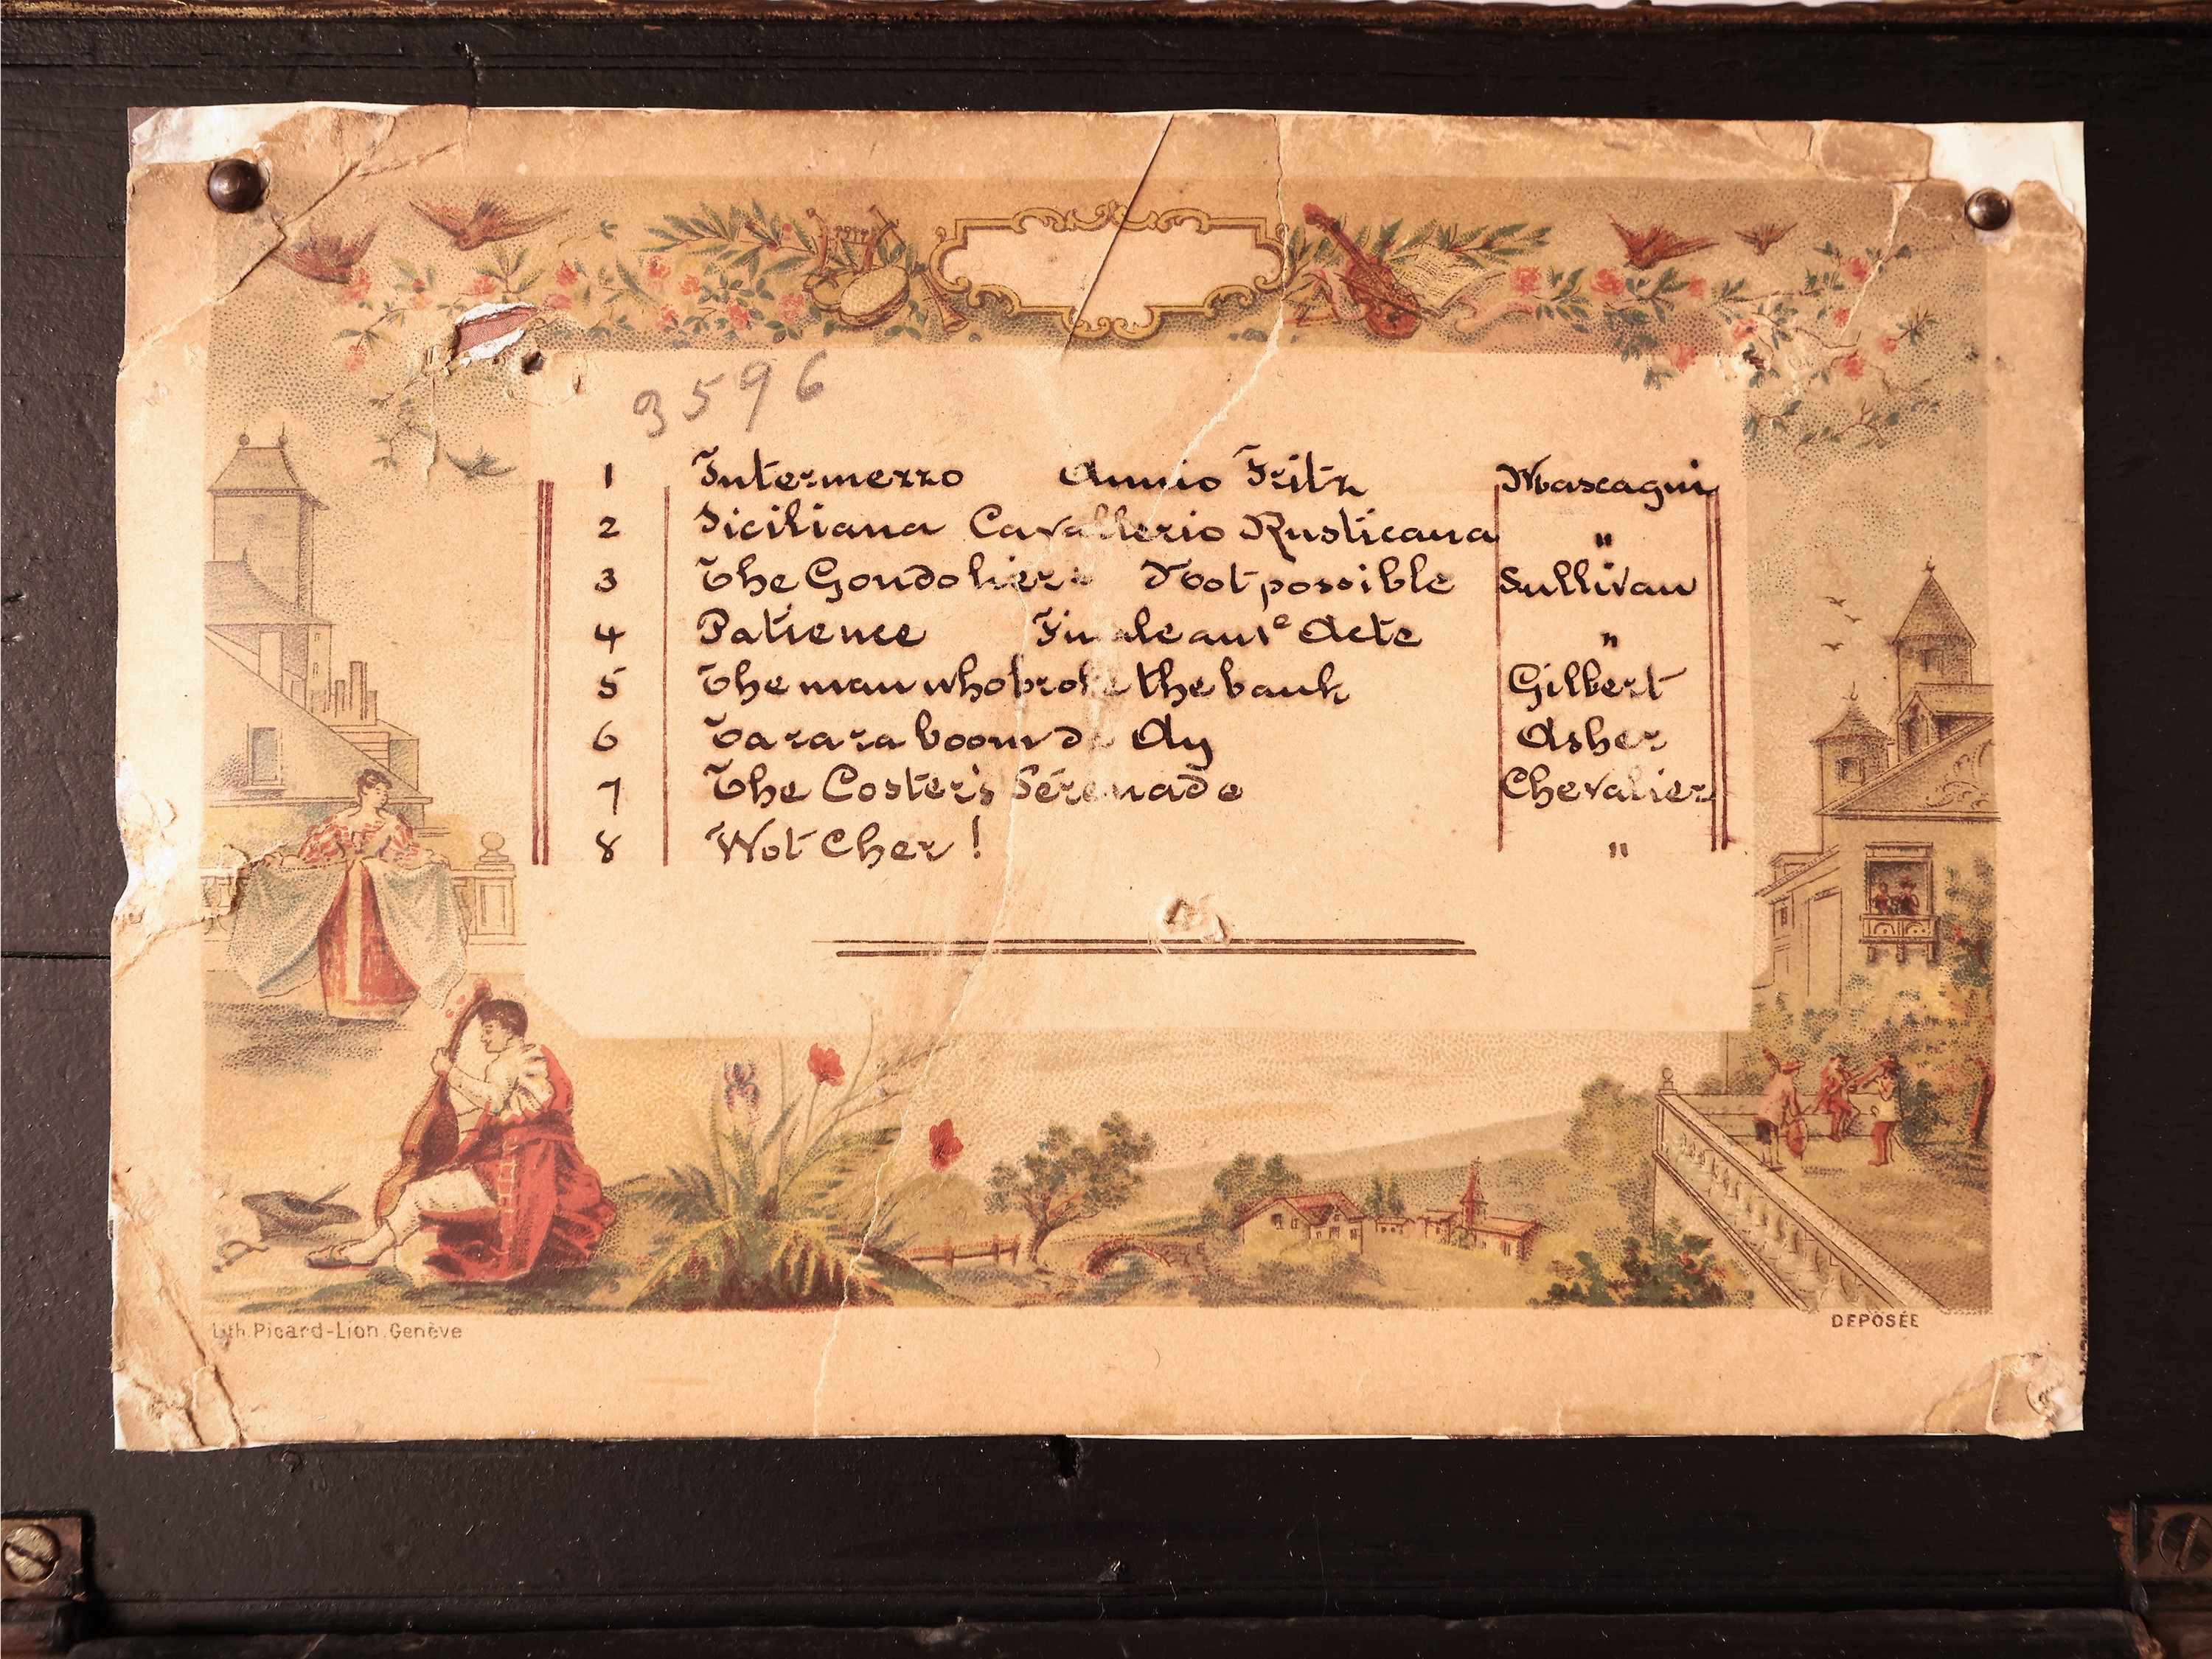 3596
1 Intermezzo Amico Fritz Mascagni
2 Siciliana Cavallerio Rusticana "
3 The Gondoliers Not possible Sullivan
4 Patience Finale Acte "
5 The man who broke the bank Gilbert
6 Ta ra ra boom de Ay Asher
7 The Coster's Sérénade Chevalier
8 Wot Cher ! "
Lith. Picard-Lion. Genève
DEPOSÉE